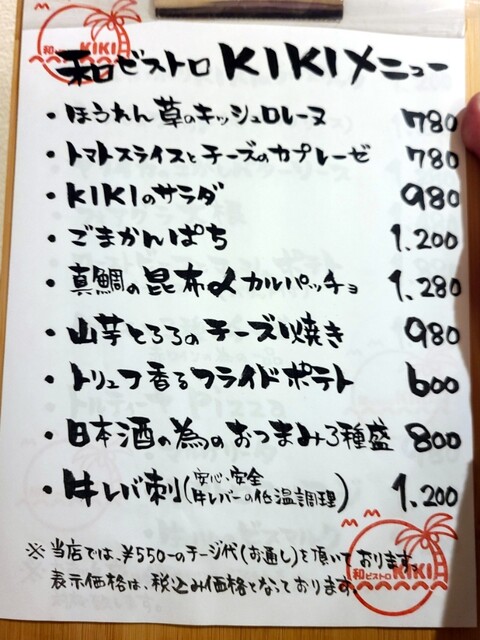 和ビストロ KIKI
和ビストロ KIKIメニュー
・ほうれん草のキッシュロレーヌ 780
・トマトスライスとチーズのカプレーゼ 780
・KIKIのサラダ 980
・ごまかんぱち 1.200
・真鯛の昆布〆カルパッチョ 1.280
・山芋とろろのチーズ焼き 980
・トリュフ香るフライドポテト 600
・日本酒の為のおつまみ3種盛 800
・牛レバ刺(安心・安全 牛レバーの低温調理) 1.200
※当店では、¥550-のチージ代(お通し)を頂いております。
表示価格は、税込み価格となっております。
和ビストロ KIKI